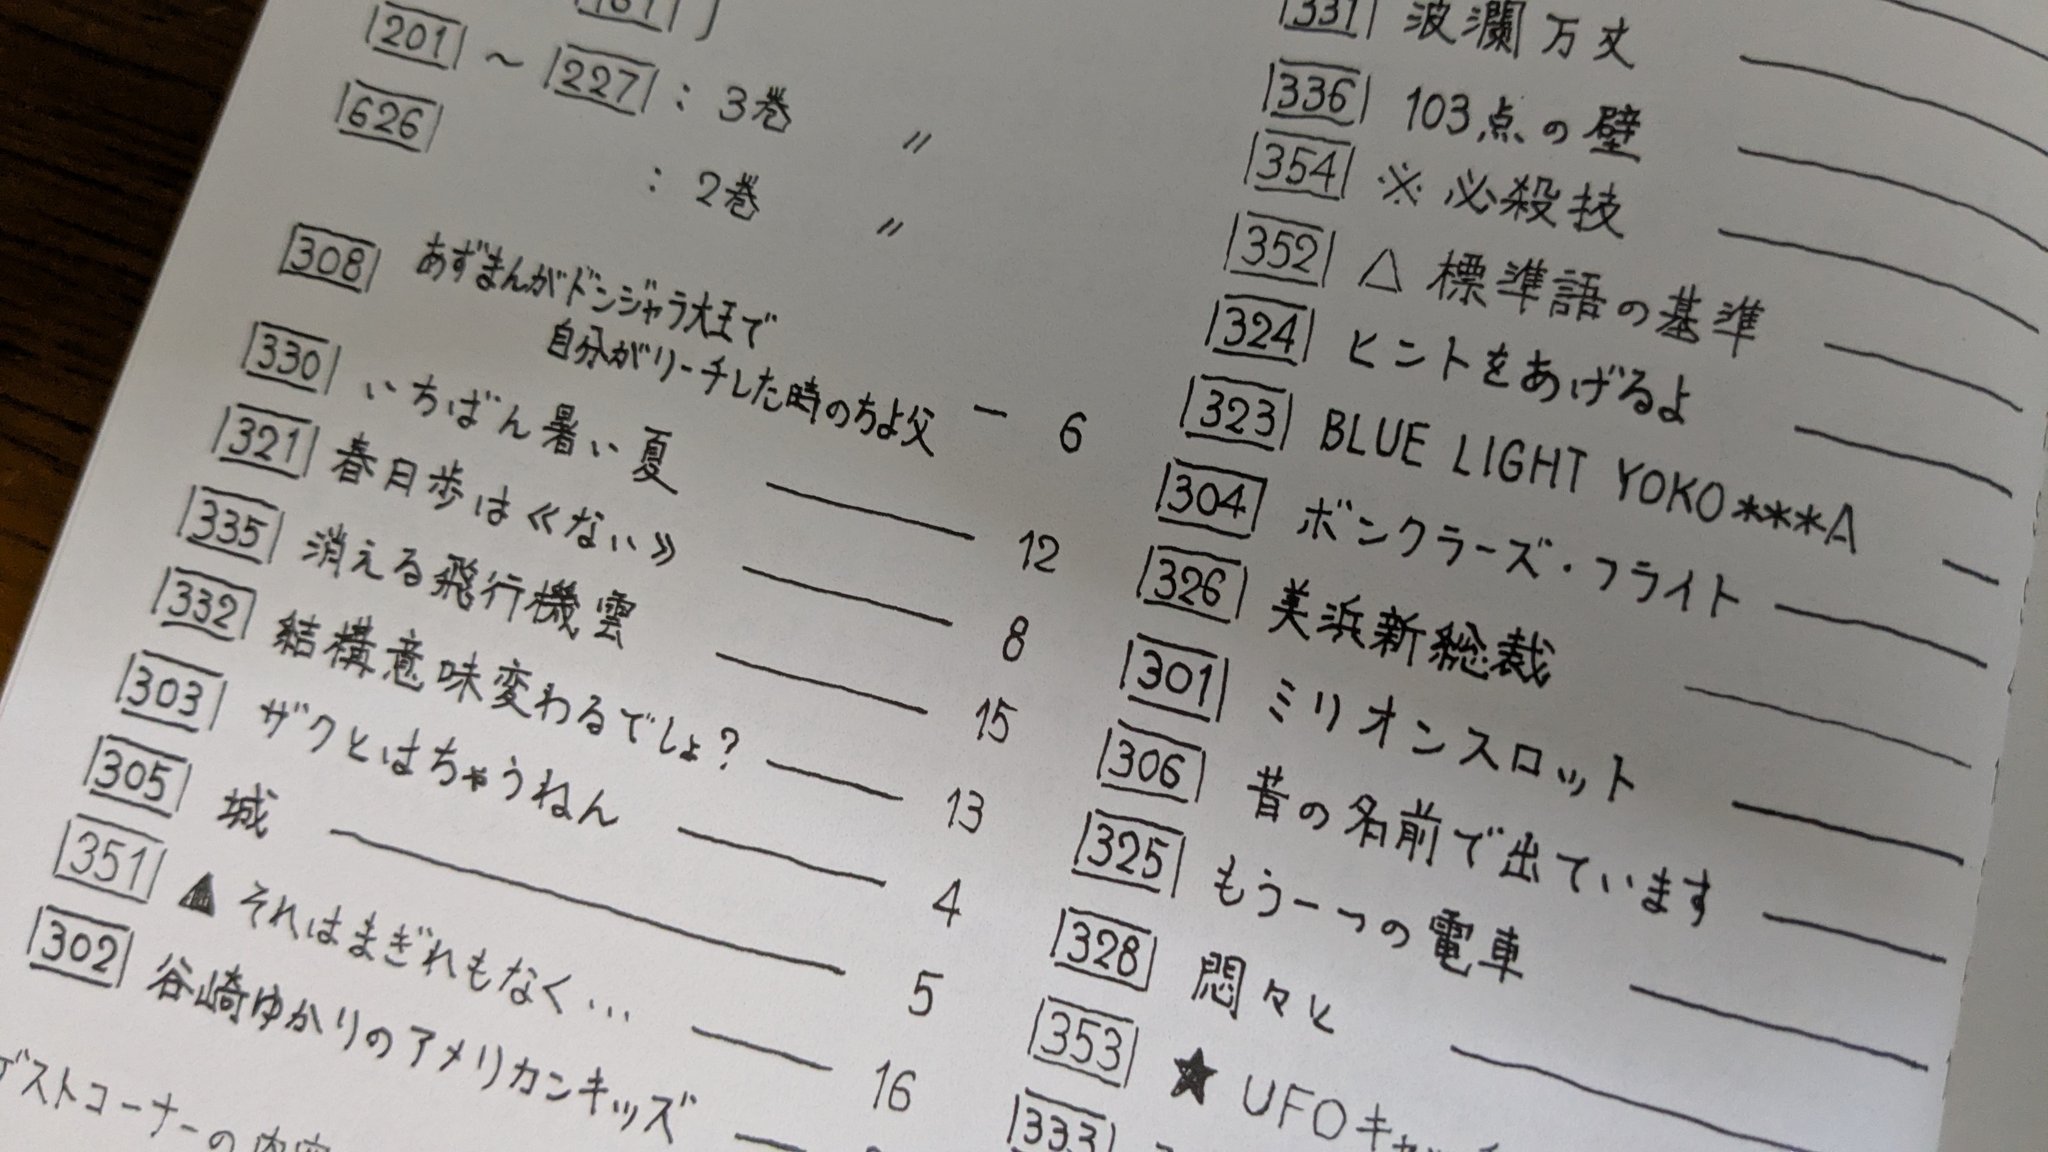 201 ～ 227 : 3巻 〃
626 : 2巻 〃
308 あずまんがドンジャラ大王で
自分がリーチした時のちよ父 ー 6
330 いちばん暑い夏 12
321 春日歩は≪ない≫ 8
335 消える飛行機雲 15
332 結構意味変わるでしょ? 13
303 ザクとはちゃうねん 4
305 城 5
351 ▲ それはまぎれもなく… 16
302 谷崎ゆかりのアメリカンキッズ
ゲストコーナーの内容
331 波瀾万丈
336 103点の壁
354 ※必殺技
352 △ 標準語の基準
324 ヒントをあげるよ
323 BLUE LIGHT YOKO***A
304 ボンクラーズ・フライト
326 美浜新総裁
301 ミリオンスロット
306 昔の名前で出ています
325 もう一つの電車
328 悶々と
353 ★ UFOキャッチ
333